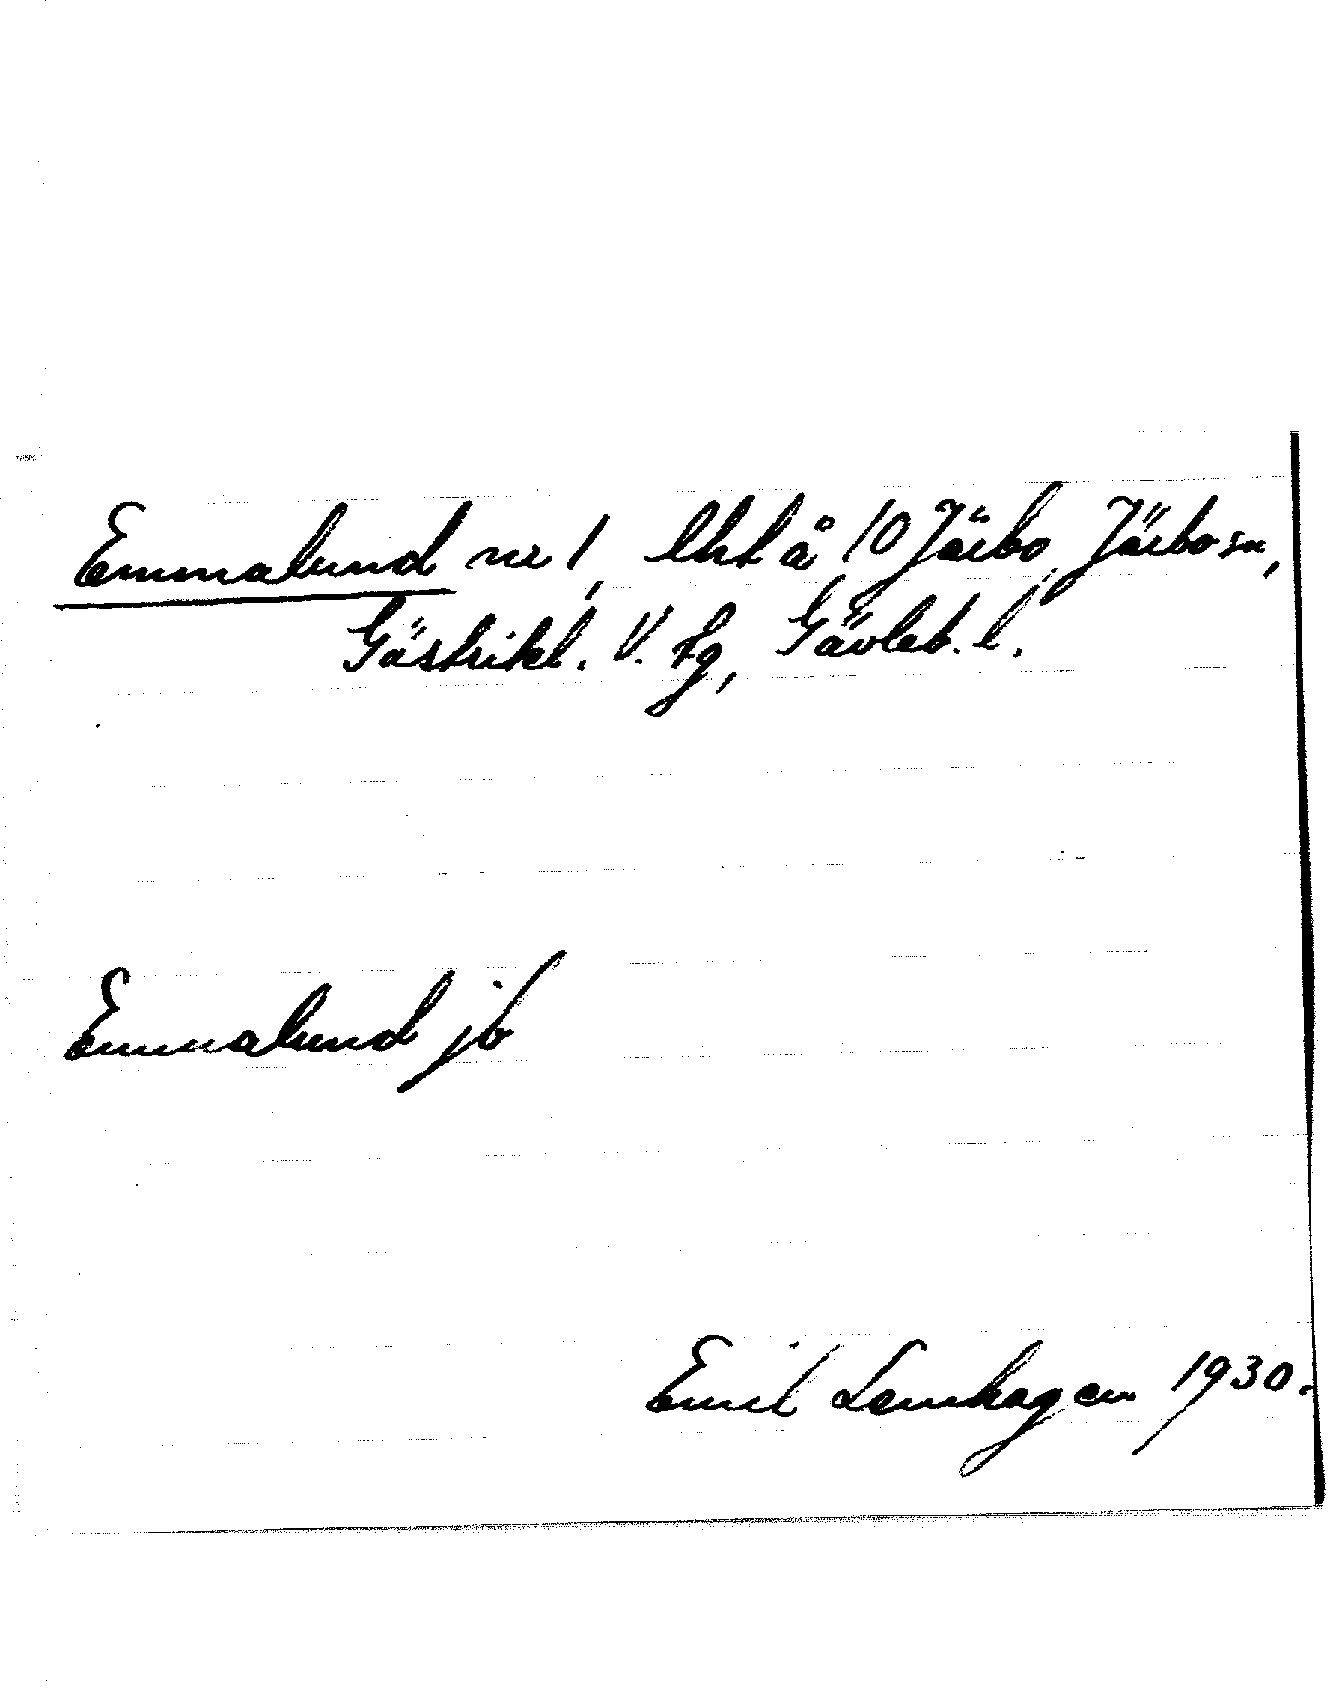 Emmalund nr 1, lht å 10 Järbo, Järbo sn,
Gästrikl. V. tg, Gävleb. l.
Emmalund jb
Emil Lennhagen 1930.